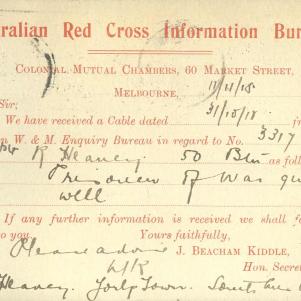 ralian Red Cross Information Bur
Colonial Mutual Chambers, 60 Market Street,
Melbourne,
11/11/18
Sir;
31/10/18
We have received a Cable dated
n W. & M. Enquiry Bureau in regard to No. 3317
R Heaney 50 Btn as follow
Prisoner of War qu
well
If any further information is received we shall fo
to you. Yours faithfully,
Please advise J. Beacham Kiddle,
Hon. Secre
Heaney. York Town. South Aus